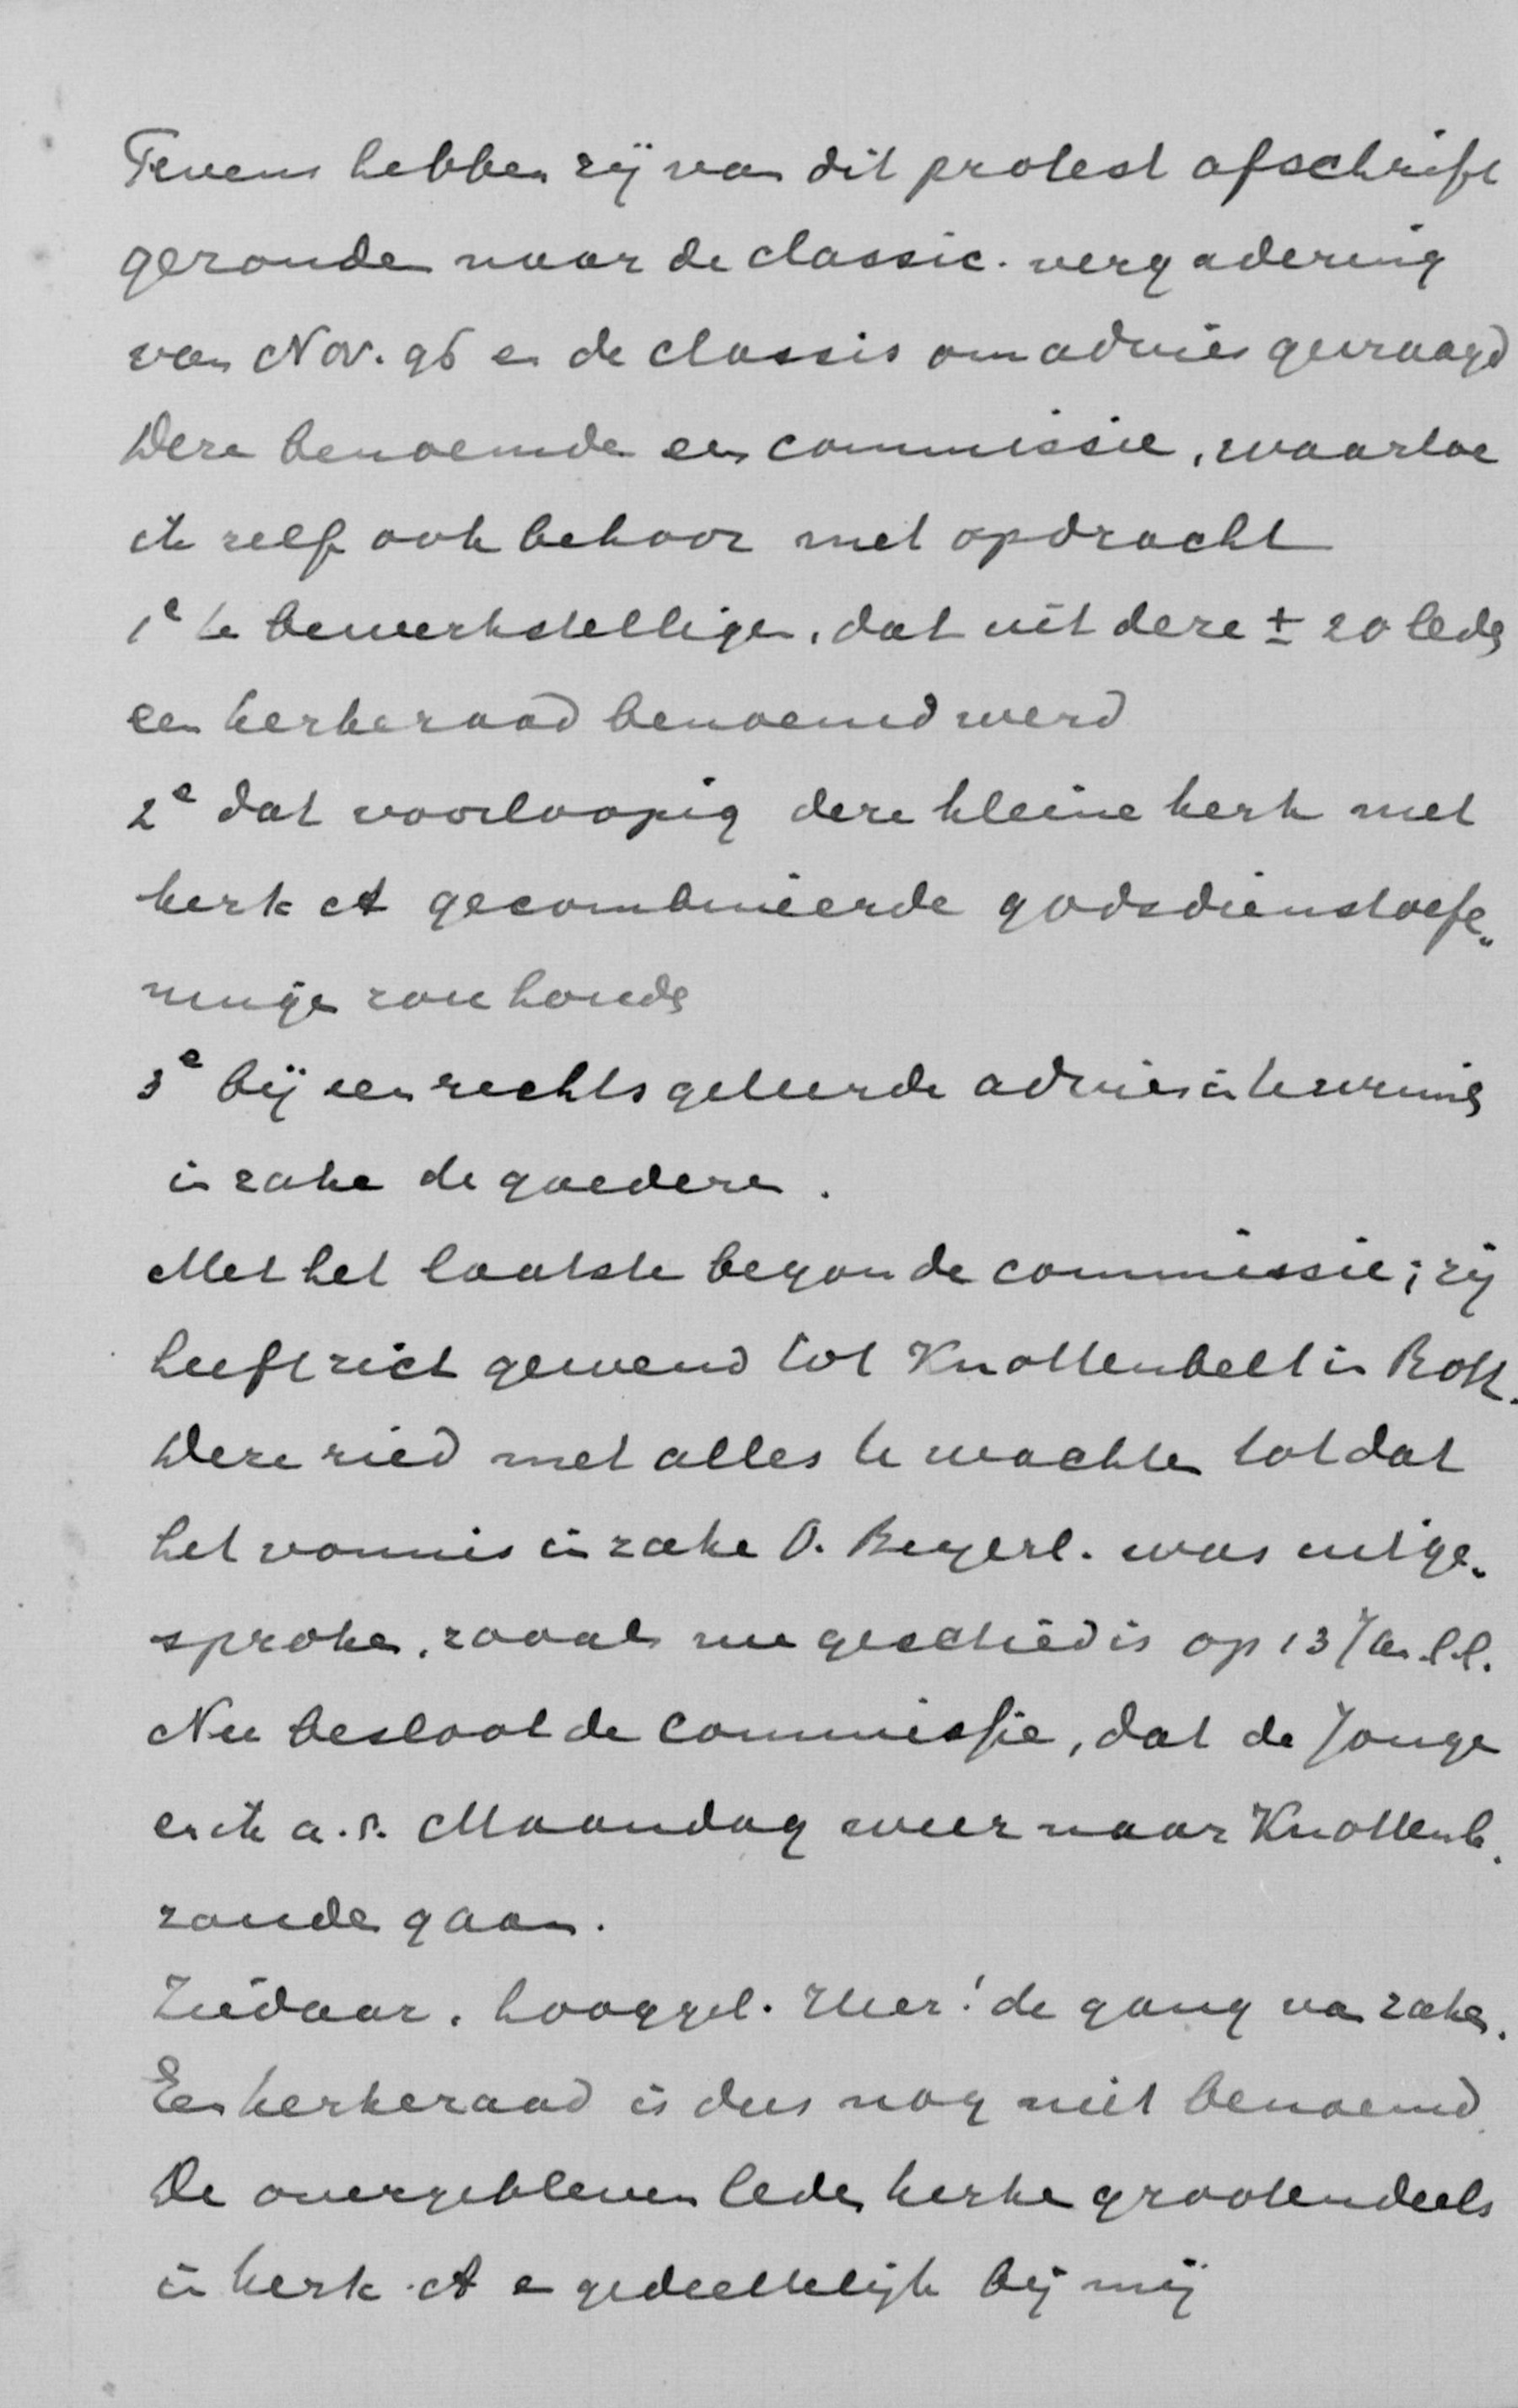 Tevens hebben zij van dit protest afschrift
gezonden naar de classic. vergadering
van Nov. 96 en de classis om advies gevraagd
Deze benoemde een commissie, waartoe
ik zelf ook behoor met opdracht
1e te bewerkstelligen, dat uit deze ± 20 leden
een kerkeraad benoemd werd
2e dat voorloopig deze kleine kerk met
kerk A gecombineerde godsdienstoefe„
ningen zou houden
3e bij een rechtsgeleerde advies in te winnen
in zake de goederen.
Met het laatste begon de commissie; zij
heeft zich gewend tot Knottenbelt in Rott.
Deze ried met alles te wachten totdat
het vonnis in zake O. Beyerl. was uitge„
sproken, zooals nu geschied is op 13 Jan. l.l.
Nu besloot de Commissie, dat de Jonge
en ik a.s. Maandag weer naar Knottenb.
zouden gaan.
Ziedaar, hooggel. Heer! de gang van zaken.
Een kerkeraad is dus nog niet benoemd.
De overgebleven leden kerken grootendeels
in kerk A en gedeeltelijk bij mij